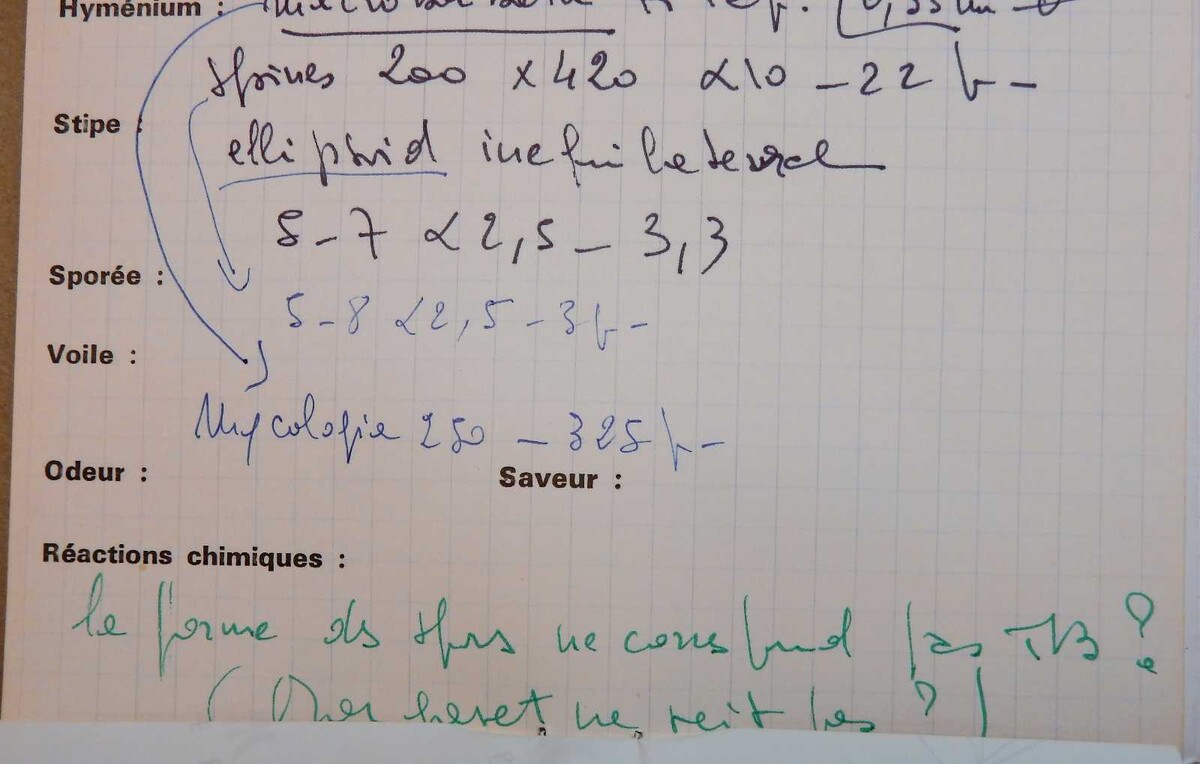 Hyménium :
Spines 200 x 420 x 10 - 22 µ -
Stipe :
ellipsoid inequilateral
5 - 7 x 2,5 - 3,3
Sporée :
5 - 8 x 2,5 - 3 µ -
Voile :
Mycologia 250 - 325 µ -
Odeur :
Saveur :
Réactions chimiques :
la forme des spores ne correspond pas TB ?
ne